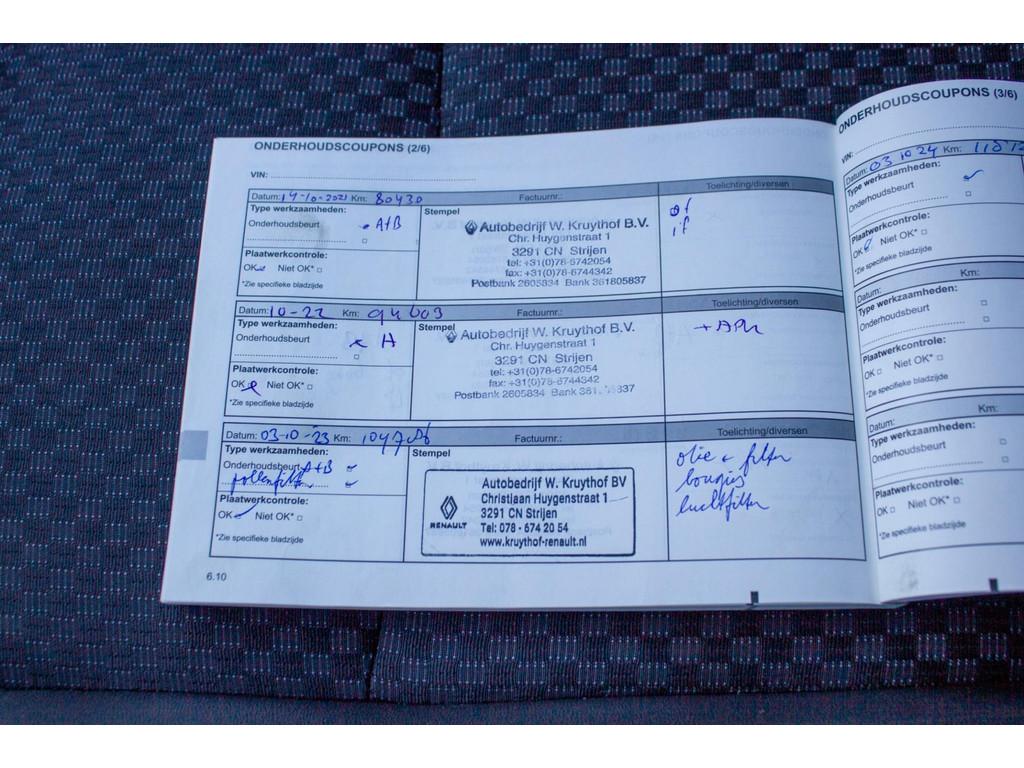 ONDERHOUDSCOUPONS (2/6)
VIN:
Datum: 14-10-2021 Km: 80430 Factuurnr.: Toelichting/diversen
Type werkzaamheden:
Onderhoudsbeurt A+B
Stempel
Autobedrijf W. Kruythof B.V.
Chr. Huygenstraat 1
3291 CN Strijen
tel: +31(0)78-6742054
fax: +31(0)78-6744342
Postbank 2605834 Bank 381805837
of
if
Plaatwerkcontrole:
OK Niet OK*
*Zie specifieke bladzijde
Datum: 10-22 Km: 94003 Factuurnr.: Toelichting/diversen
Type werkzaamheden:
Onderhoudsbeurt A
Stempel
Autobedrijf W. Kruythof B.V.
Chr. Huygenstraat 1
3291 CN Strijen
tel: +31(0)78-6742054
fax: +31(0)78-6744342
Postbank 2605834 Bank 381 837
Plaatwerkcontrole:
OK Niet OK*
*Zie specifieke bladzijde
Datum: 03-10-'23 Km: Factuurnr.: Toelichting/diversen
Type werkzaamheden:
Onderhoudsbeurt A+B
pollenfilter
Stempel
RENAULT
Autobedrijf W. Kruythof BV
Christiaan Huygenstraat 1
3291 CN Strijen
Tel: 078 - 674 20 54
www.kruythof-renault.nl
olie + filter
bougies
luchtfilter
Plaatwerkcontrole:
OK Niet OK*
*Zie specifieke bladzijde
6.10
ONDERHOUDSCOUPONS (3/6)
VIN:
Datum: 03 10 24 Km:
Type werkzaamheden:
Onderhoudsbeurt
Plaatwerkcontrole:
OK Niet OK*
*Zie specifieke bladzijde
Datum: Km:
Type werkzaamheden:
Onderhoudsbeurt
Plaatwerkcontrole:
OK Niet OK*
*Zie specifieke bladzijde
Datum: Km:
Type werkzaamheden:
Onderhoudsbeurt
Plaatwerkcontrole:
OK Niet OK*
*Zie specifieke bladzijde